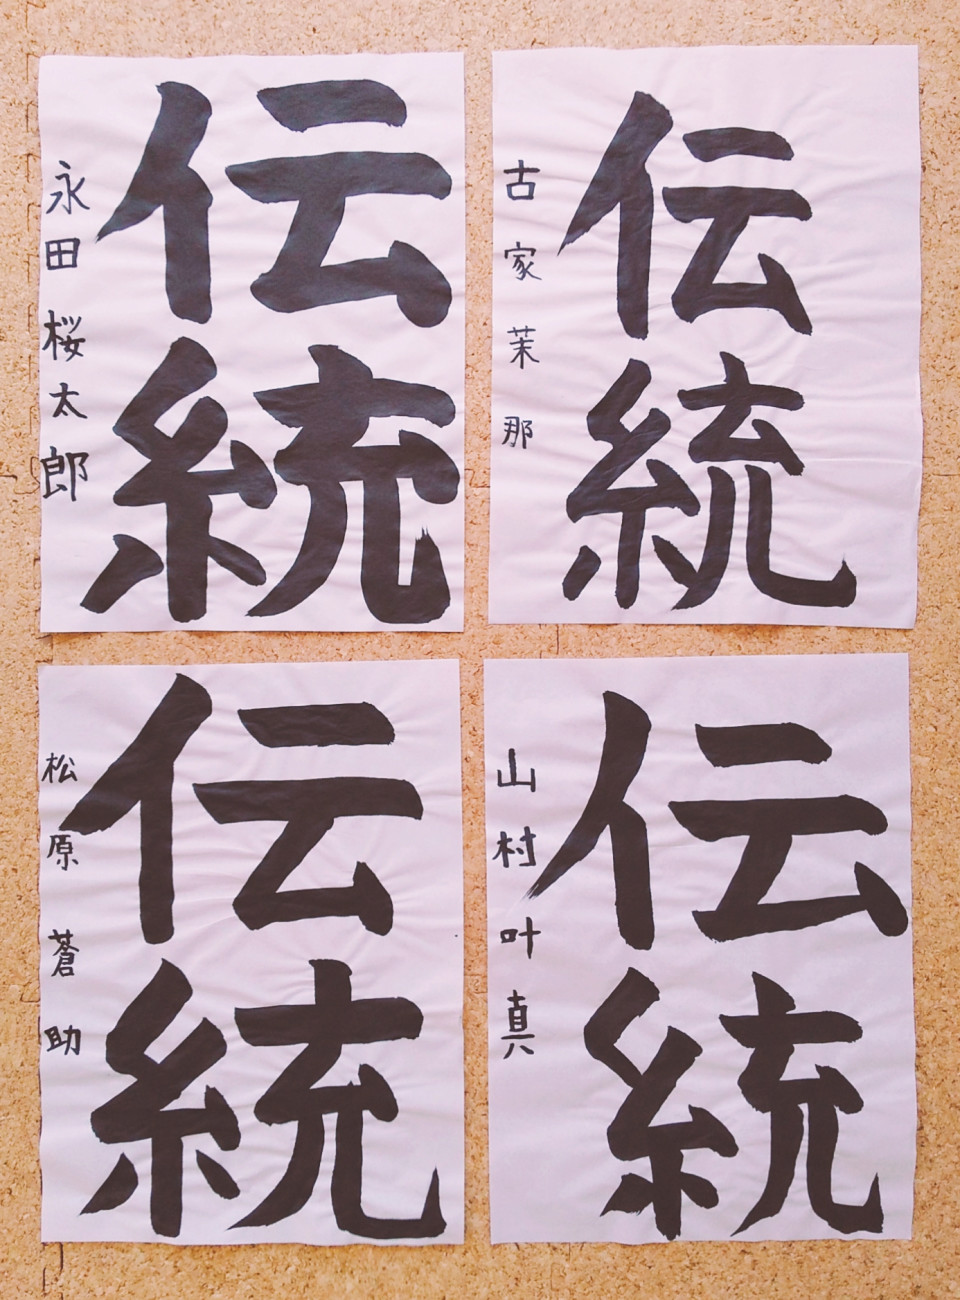 伝統
永田桜太郎
伝統
古家茉那
伝統
松原蒼助
伝統
山村叶真